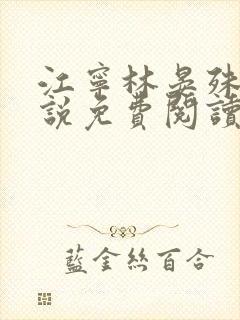 江寧林晏殊
說免費閱讀
藍金絲百合